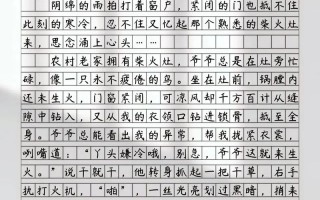 阴绵的雨拍打着窗户，紧闭的门也抵不住
此刻的寒冷，忍不住又忆起那个熟悉的柴火灶
来，思念涌上心头…
农村老家拥有柴火灶，爷爷总是在灶旁忙
碌，像一只永不疲倦的鸟。坐在灶前，锅膛内
还未生火，门窗紧闭，可凉风却千方百计从缝
隙中钻入，又从我的衣领口钻进锁骨，抵至全
身。爷爷总能看出我的异常，帮我拢紧衣裳，
咧嘴道：“丫头嫌冷哦，别急，爷爷这就来生
火。”说干就干，他转身抓起一把干草，右手
执打火机，“啪”，一丝光亮划过黑暗，捎来